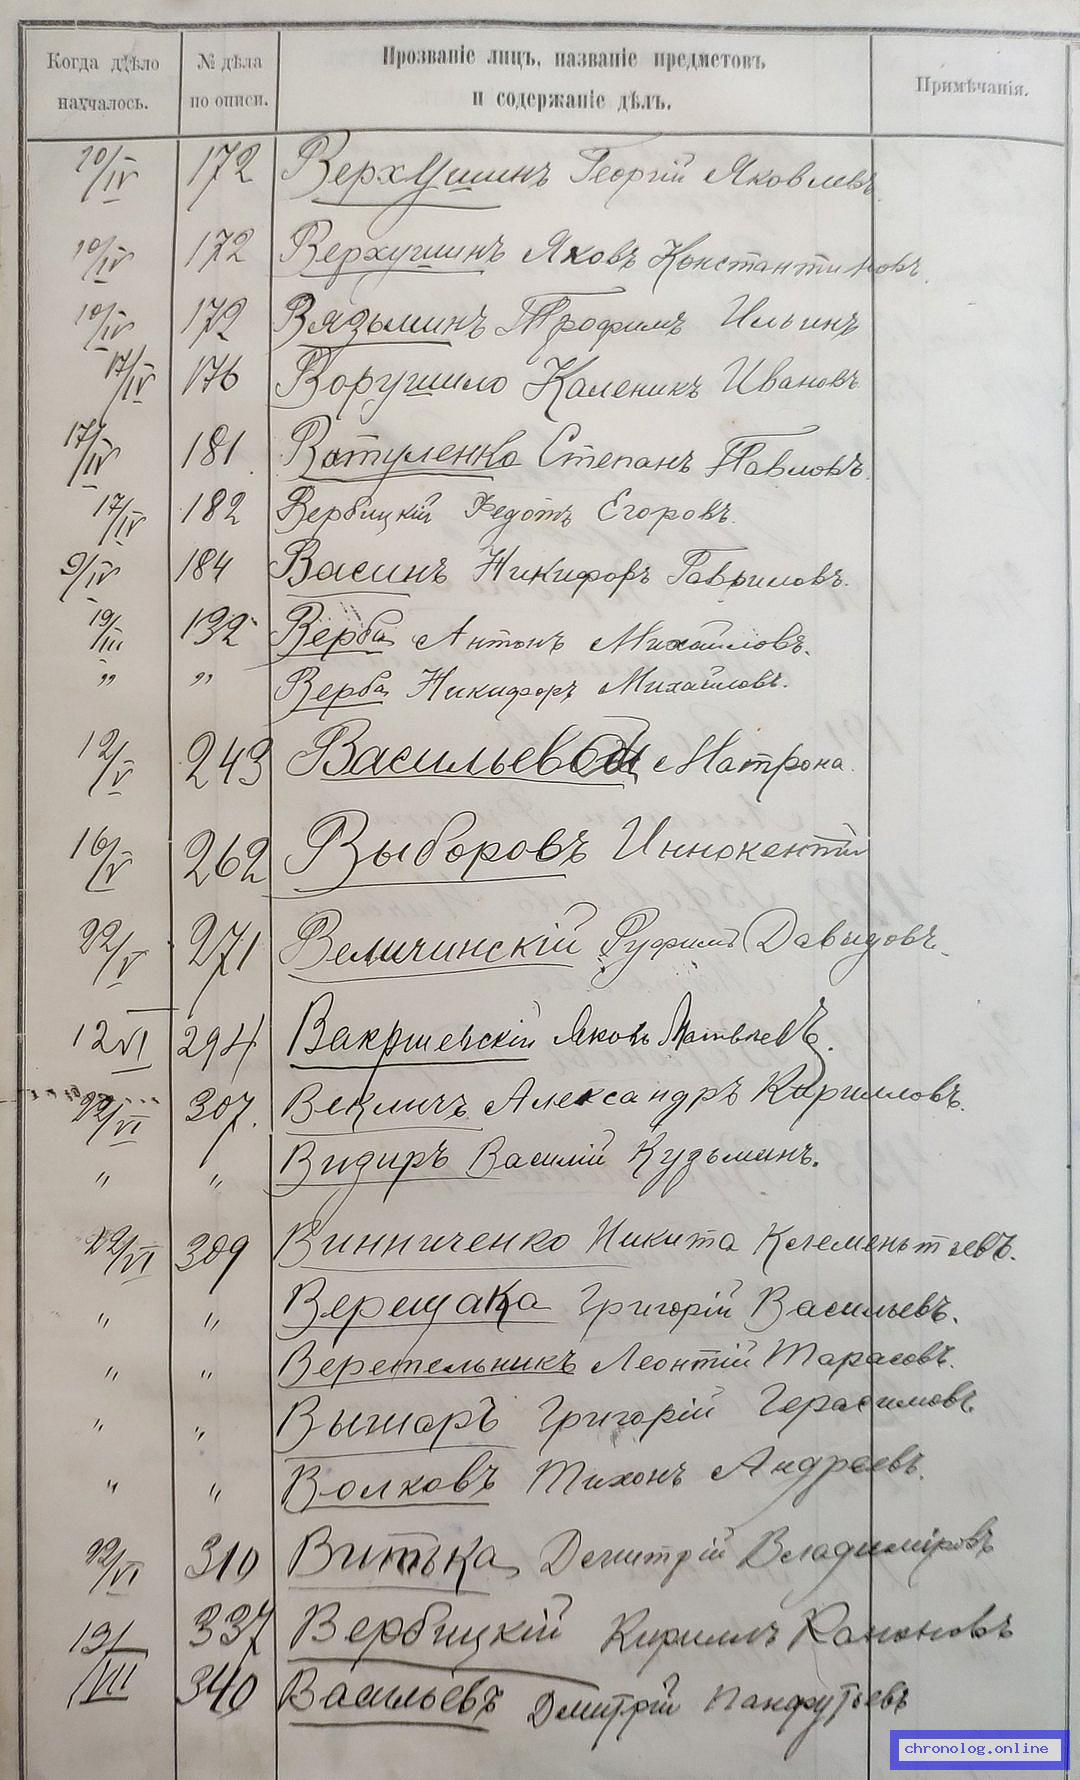 Когда дѣло началось.
№ дѣла по описи.
Прозваніе лицъ, названіе предметовъ
и содержаніе дѣлъ.
Примѣчанія.
10/IV 172 Верхушинъ Георгій Яковлевъ
10/IV 172 Верхушинъ Яковъ Константиновъ.
10/IV 172 Вязьминъ Трофимъ Ильинъ
17/IV 176 Ворушило Каленикъ Ивановъ
17/IV 181 Ватуленко Степанъ Павловъ.
17/IV 182 Вербицкій Федотъ Егоровъ.
9/IV 184 Васинъ Никифоръ Гавриловъ.
19/III 132 Верба Антонъ Михайловъ.
" " Верба Никифоръ Михайловъ.
12/V 243 Васильева Матрона.
16/V 262 Выборовъ Иннокентій
22/V 271 Величинскій Руфимъ Давыдовъ.
12 VI 294 Яковъ Матвѣевъ.
22/VI 307. Векличъ Александръ Кирилловъ.
" " Видиръ Василій Кузьминъ.
22/VI 309 Винниченко Никита Клементьевъ.
" " Верещака Григорій Васильевъ.
" " Веретельникъ Леонтій Тарасовъ.
" " Вышаръ Григорій Герасимовъ.
" " Волковъ Тихонъ Андреевъ.
22/VI 310 Витька Дмитрій Владиміровъ
13/VII 337 Вербицкій Кириллъ
340 Васильевъ Дмитрій Панфутьевъ
chronolog.online